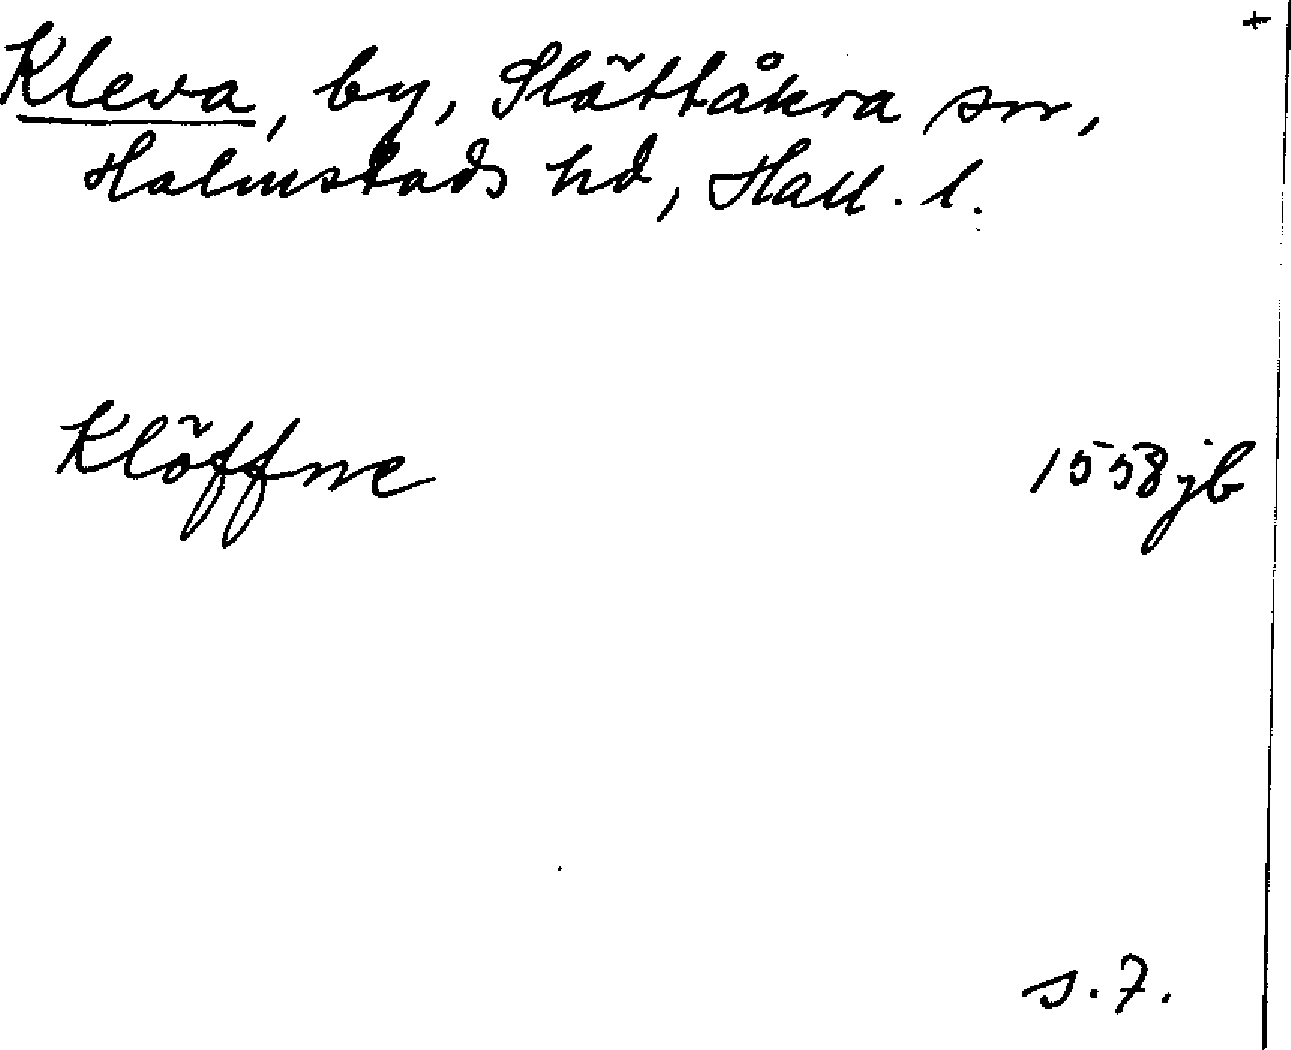 +
Kleva, by, Slättåkra sn,
Halmstads hd, Hall. l.
Klöffne 1558 jb
s. 7.